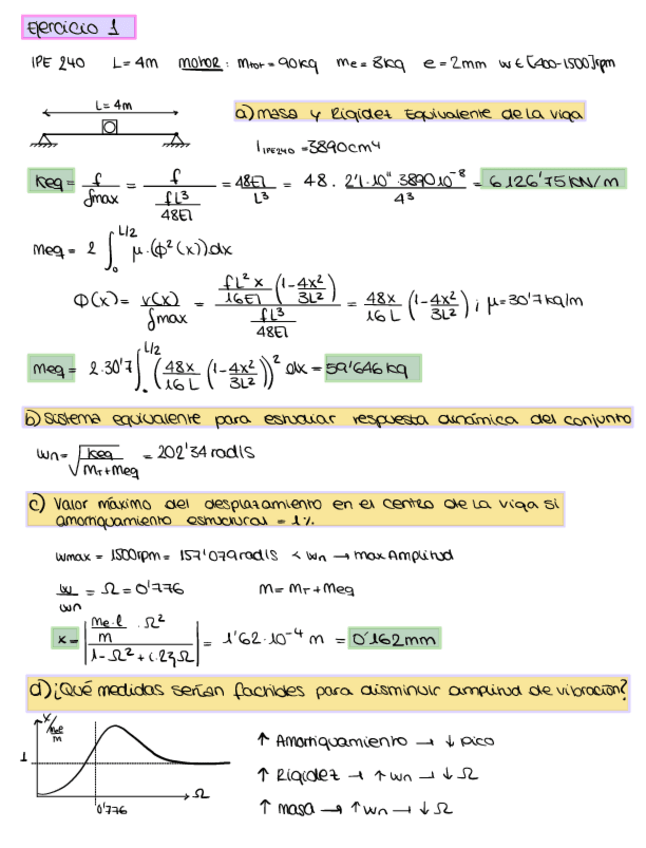 Ejercicio 1
IPE 240 L=4m motor: mtot=90kg me=8kg e=2mm w∈[400-1500]rpm
L=4m
a) masa y Rigidez Equivalente de la viga
I IPE240 = 3890cm⁴
Keq = f/δmax = f/(fL³/48EI) = 48EI/L³ = 48 · 2'1·10¹¹·3890·10⁻⁸/4³ = 6126'75 KN/m
Meq = 2 ∫₀^(L/2) μ·(ϕ²(x))dx
ϕ(x) = v(x)/δmax = (fL²x/16EI (1-4x²/3L²))/(fL³/48EI) = 48x/16L (1-4x²/3L²) ; μ=30'7kg/m
Meq = 2·30'7 ∫₀^(L/2) (48x/16L (1-4x²/3L²))² dx = 59'646 kg
b) Sistema equivalente para estudiar respuesta dinámica del conjunto
wn = √(Keq/(MT+Meq)) = 202'34 rad/s
c) Valor máximo del desplazamiento en el centro de la viga si
amortiguamiento estructural = 1%
wmax = 1500rpm = 157'079 rad/s < wn → max Amplitud
w/wn = Ω = 0'776 m = MT+Meq
x = |(me·e/m · Ω²)/(1-Ω²+i·2ξΩ)| = 1'62·10⁻⁴ m = 0'162mm
d) ¿Qué medidas serían factibles para disminuir amplitud de vibración?
X/(me/m)
1
Ω
0'776
↑ Amortiguamiento → ↓ pico
↑ Rigidez → ↑ wn → ↓ Ω
↑ masa → ↑ wn → ↓ Ω